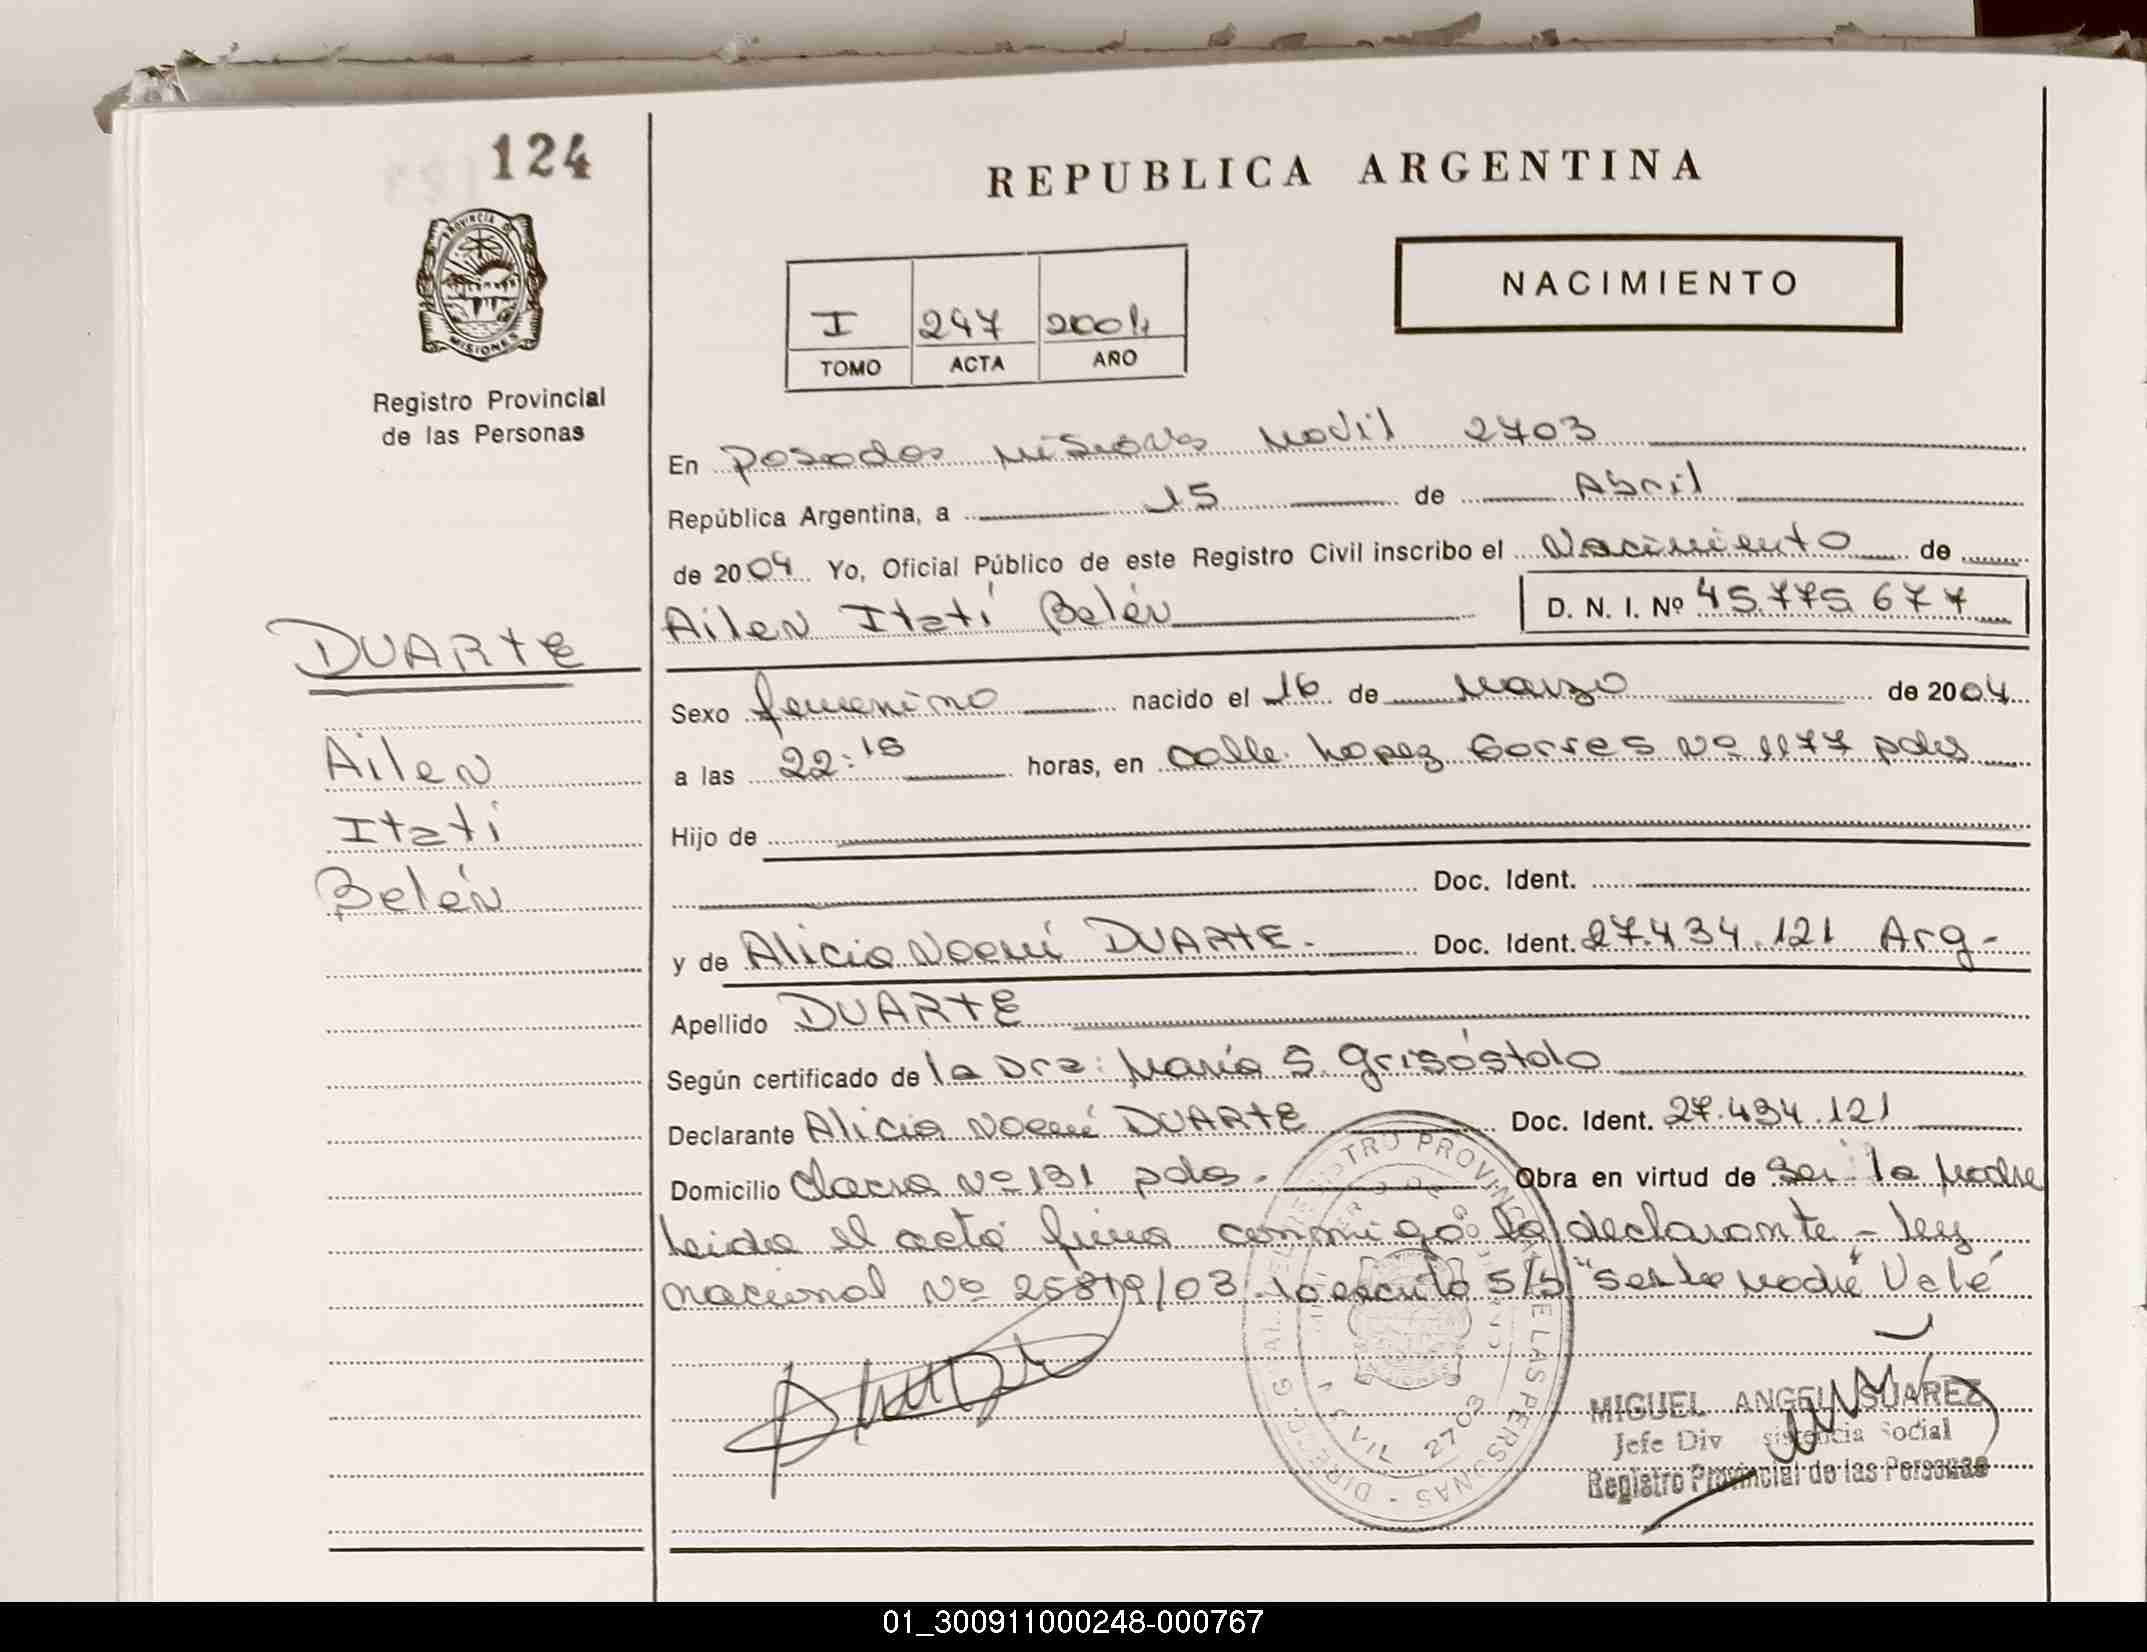 124
PROVINCIA D
MISIONES
Registro Provincial
de las Personas
DUARTE
Ailen
Itatí
Belén
REPUBLICA ARGENTINA
NACIMIENTO
I 247 2004
TOMO ACTA AÑO
En Posadas Misiones Movil 2703
República Argentina, a 15 de Abril
de 2004 Yo, Oficial Público de este Registro Civil inscribo el Nacimiento de
Ailen Itatí Belén D. N. I. Nº 45.775.677
Sexo femenino nacido el 16 de Marzo de 2004
a las 22:15 horas, en calle Lopez Torres Nº 1177 pdas
Hijo de
Doc. Ident.
y de Alicia Noemí DUARTE. Doc. Ident. 27.434.121 Arg-
Apellido DUARTE
Según certificado de la Dra: María S. Grisóstolo
Declarante Alicia Noemí DUARTE Doc. Ident. 27.434.121
Domicilio Chacra Nº 131 pdas. Obra en virtud de Ser la Madre
Leida el acta firma conmigo la declarante - ley
nacional Nº 25819/03. lo escrito S/b "Ser la Madre" Vale
MIGUEL ANGEL SUAREZ
Jefe Div sistencia Social
Registro Provincial de las Personas
2703
01_300911000248-000767